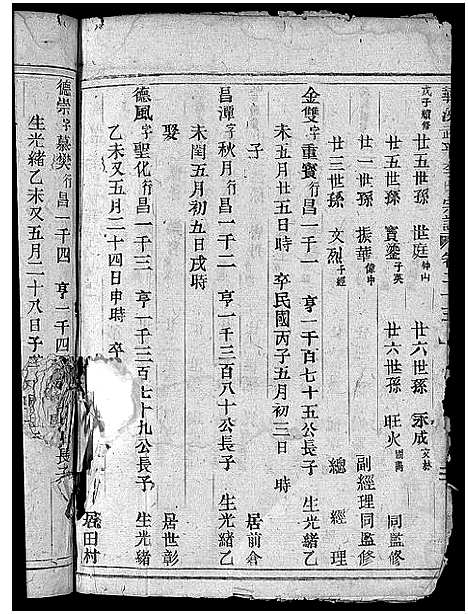 戊子續修
廿五世孫 世庭 神山 廿六世孫 永成 文林
廿五世孫 寶鎏 子英 廿六世孫 旺火 國禹 同監修
廿四世孫 振華 偉中 副經理同監修
廿三世孫 文烈 子經 總經理
金雙字重寶行昌一千一 亨一千百七十五公長子 生光緒乙
未五月廿五日時 卒民國丙子五月初三日 時
子
昌潭字秋月行昌一千二 亨一千三百八十公長子 生光緒乙
未閏五月初五日戌時 居前倉
娶
德風字聖化行昌一千三 亨一千二百七十九公長子 生光緒
乙未又五月二十四日申時 卒 居世彰
居田村
德崇字慕樊行昌一千四 亨一千四
生光緒乙未又五月二十八日子